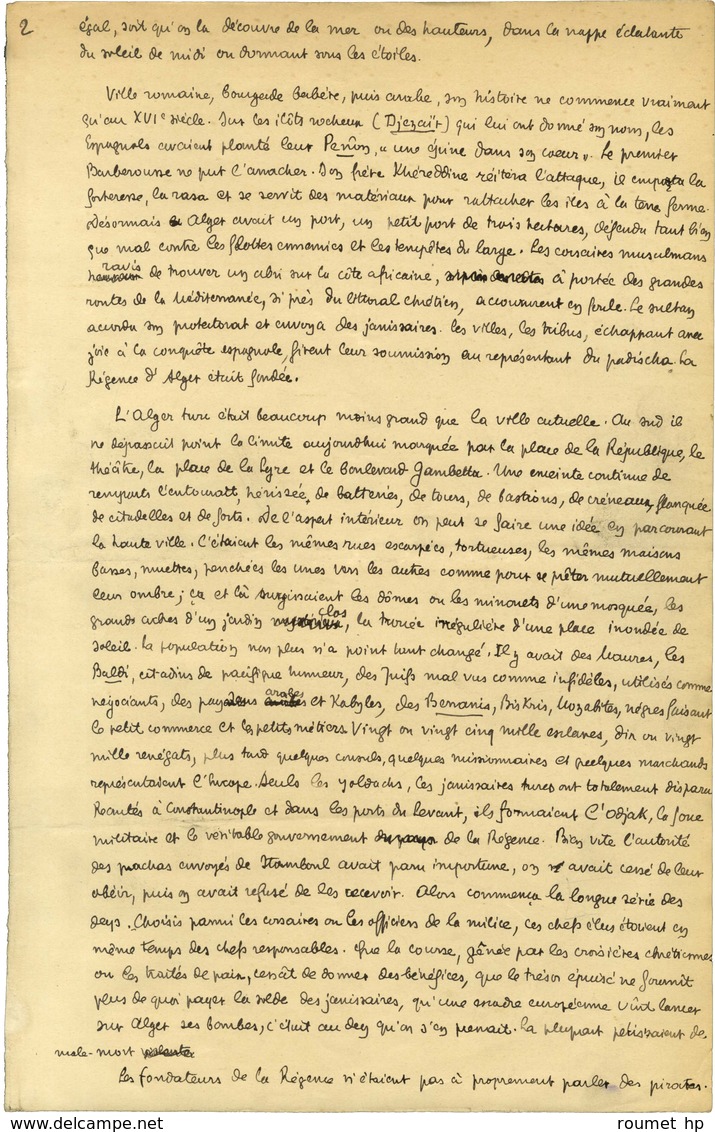 2
égal, soit qu'on la découvre de la mer ou des hauteurs, dans la nappe éclatante
du soleil de midi ou dormant sous les étoiles.
Ville romaine, bourgade berbère, puis arabe, son histoire ne commence vraiment
qu'au XVIe siècle. Sur les îlots rocheux (Djezaïr) qui lui ont donné son nom, les
Espagnols avaient planté leur Peñon, « une épine dans son coeur ». Le premier
Barberousse ne put l'arracher. Son frère Khéreddine réitéra l'attaque, il emporta la
forteresse, la rasa et se servit des matériaux pour rattacher les îles à la terre ferme.
Désormais Alger avait un port, un petit port de trois hectares, défendu tant bien
que mal contre les flottes ennemies et les tempêtes du large. Les corsaires musulmans
ravis
de trouver un abri sur la côte africaine, à portée des grandes
routes de la Méditerranée, si près du littoral chrétien, accoururent en foule. Le sultan
accorda son protectorat et envoya des janissaires. Les villes, les tribus, échappant avec
joie à la conquête espagnole, firent leur soumission au représentant du padischa. La
Régence d'Alger était fondée.
L'Alger turc était beaucoup moins grand que la ville actuelle. Au sud il
ne dépassait point la limite aujourd'hui marquée par la place de la République, le
théâtre, la place de la Lyre et le boulevard Gambetta. Une enceinte continue de
remparts l'entourait, hérissée de batteries, de tours, de bastions, de créneaux, flanquée
de citadelles et de forts. De l'aspect intérieur on peut se faire une idée en parcourant
la haute ville. C'étaient les mêmes rues escarpées, tortueuses, les mêmes maisons
basses, muettes, penchées les unes vers les autres comme pour se prêter mutuellement
leur ombre ; ça et là surgissaient les dômes ou les minarets d'une mosquée, les
grands arbres d'un jardin clos, la trouée irrégulière d'une place inondée de
soleil. La population non plus n'a point tant changé. Il y avait des Maures, les
Baldi, citadins de pacifique humeur, des Juifs mal vus comme infidèles, utilisés comme
négociants, des paysans arabes et Kabyles, des Berranis, Biskris, Mozabites, nègres faisant
le petit commerce et les petits métiers. Vingt ou vingt cinq mille esclaves, dix ou vingt
mille renégats, plus tard quelques consuls, quelques missionnaires et quelques marchands
représentaient l'Europe. Seuls les yoldachs, les janissaires turcs ont totalement disparu
Recrutés à Constantinople et dans les ports du Levant, ils formaient l'Odjak, la force
militaire et le véritable gouvernement de la Régence. Bien vite l'autorité
des pachas envoyés de Stamboul avait paru importune, on avait cessé de leur
obéir, puis on avait refusé de les recevoir. Alors commença la longue série des
deys. Choisis parmi les corsaires ou les officiers de la milice, ces chefs élus étaient en
même temps des chefs responsables. Que la course, gênée par les croisières chrétiennes
ou les traités de paix, cessât de donner des bénéfices, que le trésor épuisé ne fournît
plus de quoi payer la solde des janissaires, qu'une escadre européenne vînt lancer
sur Alger ses bombes, c'était au dey qu'on s'en prenait. La plupart périssaient de
male-mort
Les fondateurs de la Régence n'étaient pas à proprement parler des pirates.
roumet hp